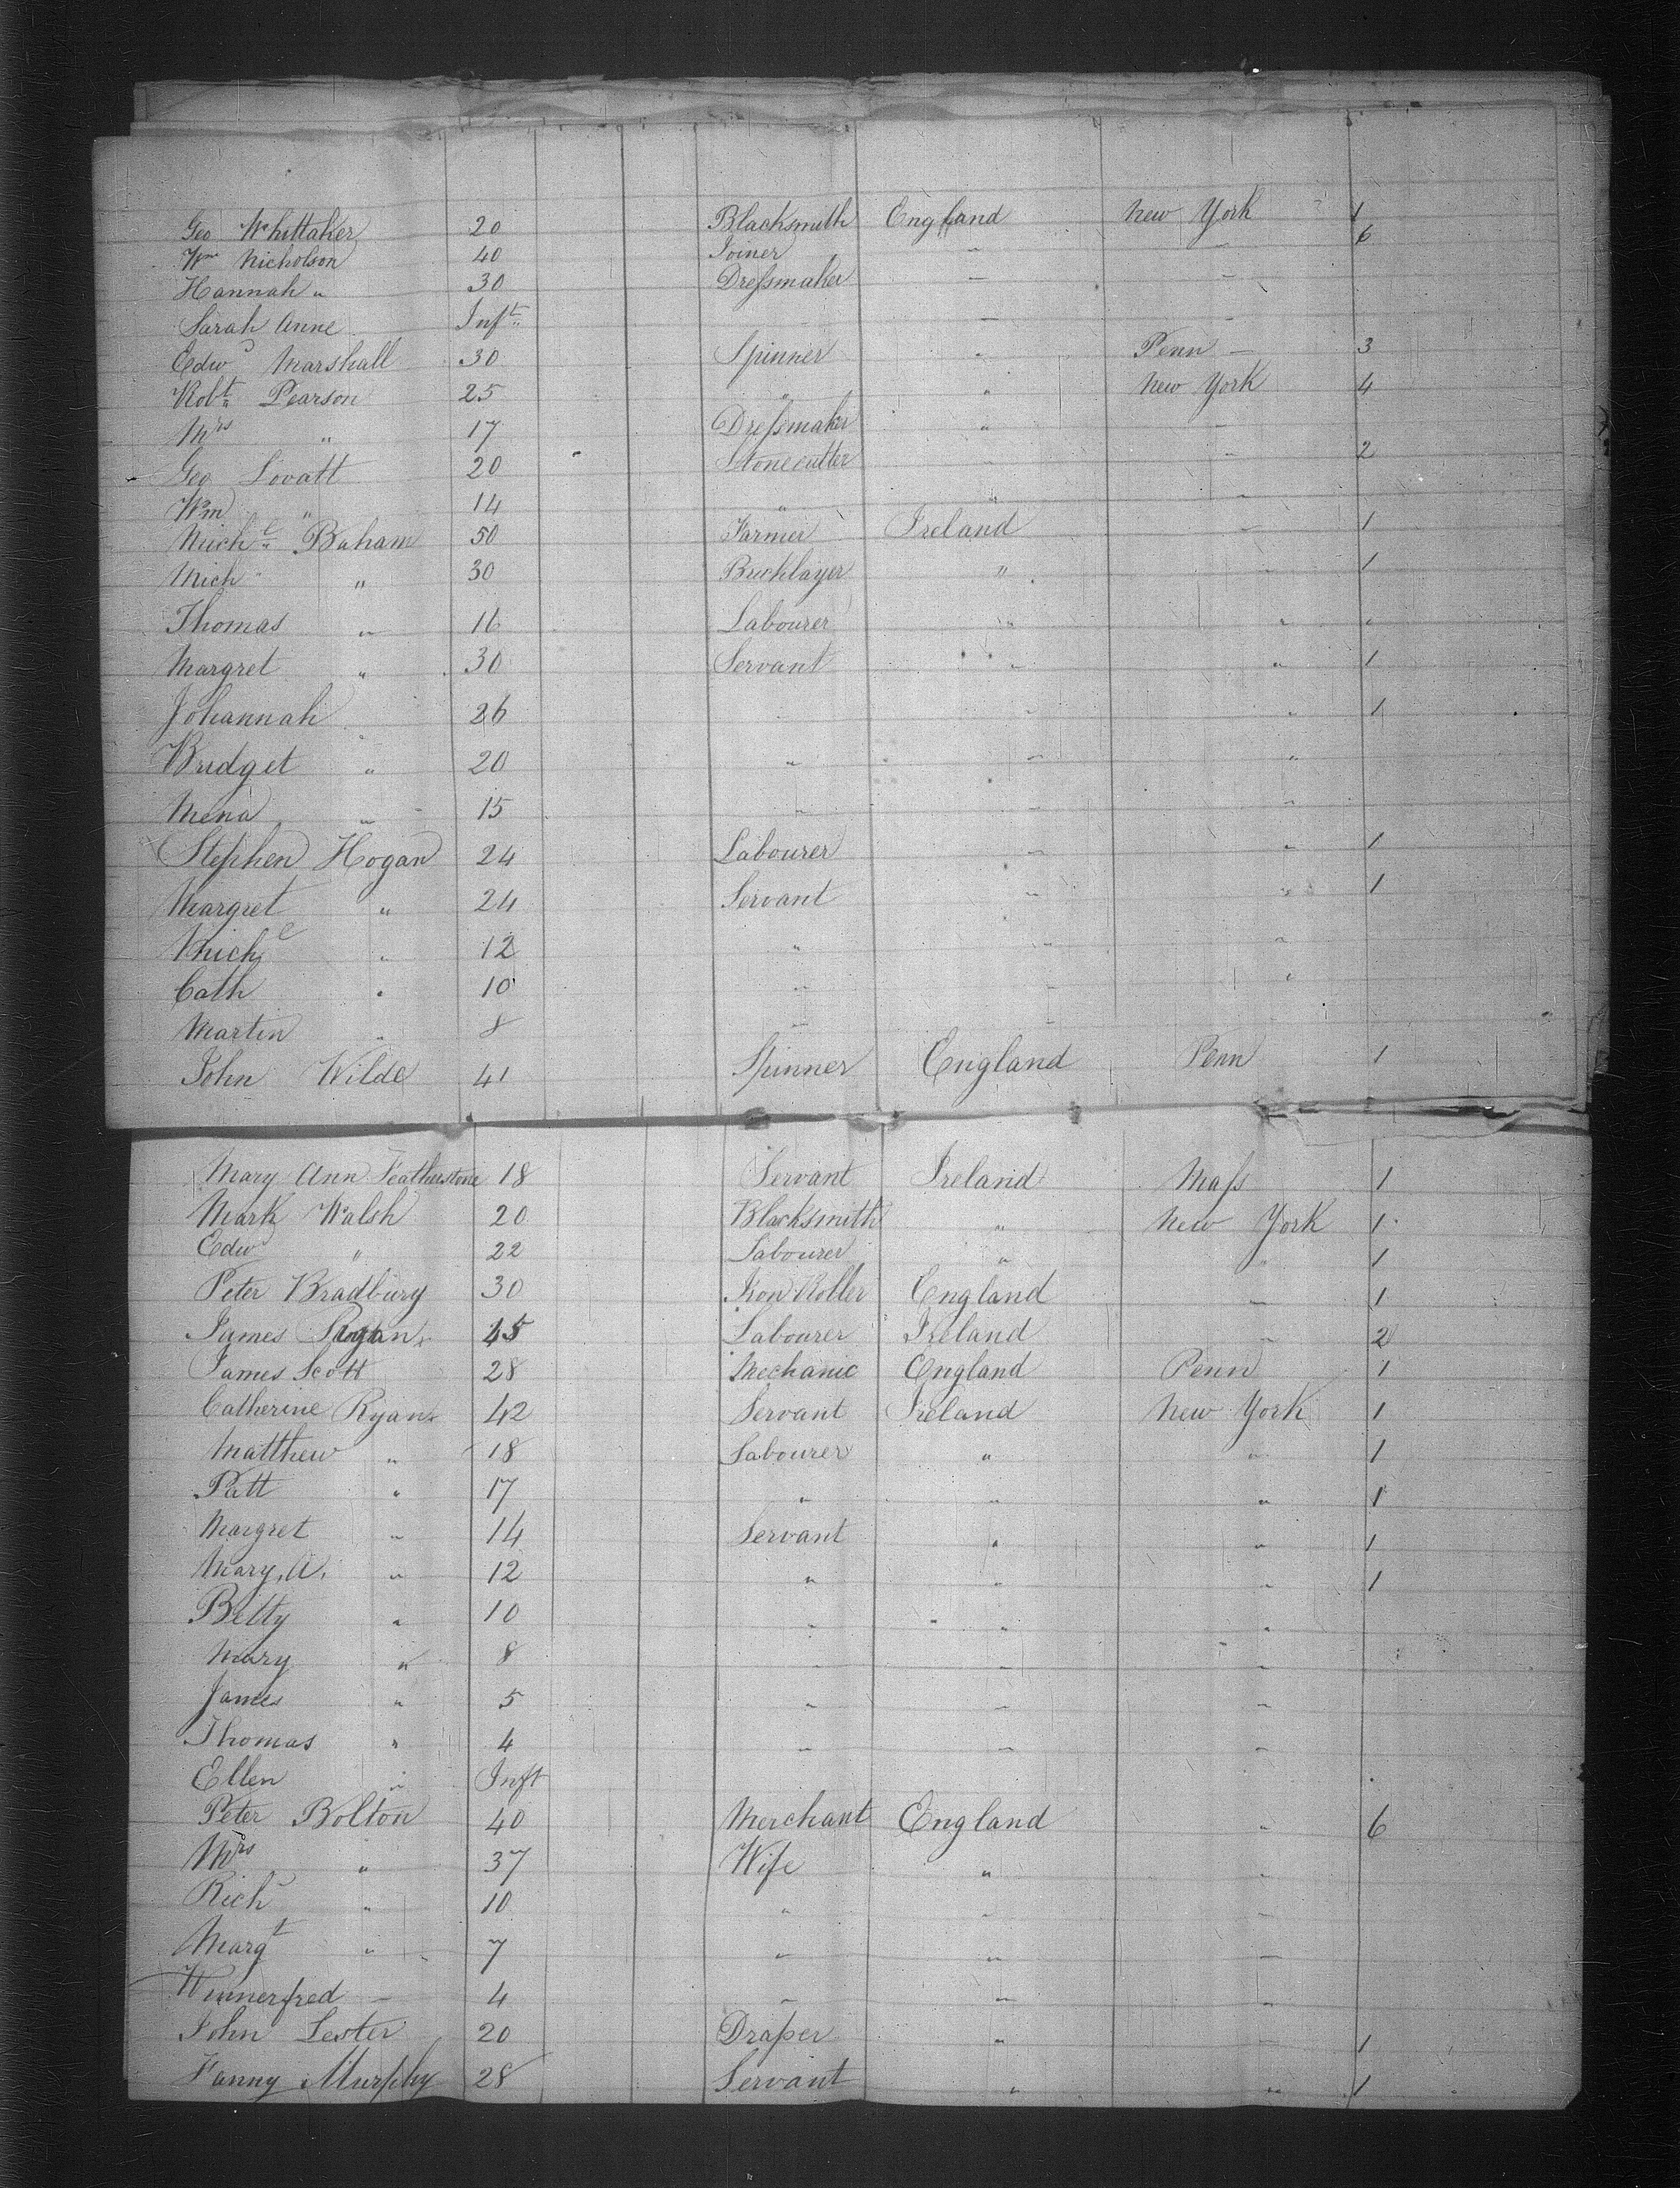 Geo Whittaker 20 Blacksmith England New York 1
Wm Nicholson 40 Joiner " " 6
Hannah " 30 Dressmaker " "
Sarah Anne Inft " " "
Edwd Marshall 30 Spinner " Penn 3
Robt Pearson 25 " " New York 4
Mrs " 17 Dressmaker " "
Geo Lovatt 20 Stonecutter " " 2
Wm " 14 " " "
Michl Baham 50 Farmer Ireland " 1
Mich " 30 Bricklayer " " 1
Thomas " 16 Labourer " " "
Margret " 30 Servant " " 1
Johannah " 26 " " " 1
Bridget " 20 " " "
Mena " 15 " " "
Stephen Hogan 24 Labourer " " 1
Margret " 24 Servant " " 1
Michl " 12 " " "
Cath " 10 " " "
Martin " 8 " "
John Wilde 41 Spinner England Penn 1
Mary Ann Featherstone 18 Servant Ireland Mass 1
Mark Walsh 20 Blacksmith " New York 1
Edwd " 22 Labourer " " 1
Peter Bradbury 30 Iron Roller England " 1
James 45 Labourer Ireland " 2
James Scott 28 Mechanic England Penn 1
Catherine Ryan 42 Servant Ireland New York 1
Matthew " 18 Labourer " " 1
Patt " 17 " " " 1
Margret " 14 Servant " " 1
Mary, A. " 12 " " " 1
Betty " 10 " " "
Mary " 8 " " "
James " 5 " " "
Thomas " 4 " " "
Ellen " Inft
Peter Bolton 40 Merchant England " 6
Mrs " 37 Wife " "
Richd " 10 " " "
Margt " 7 " " "
Winnerfred " 4 " " "
John Lester 20 Draper " " 1
Fanny Murphy 28 Servant " " 1